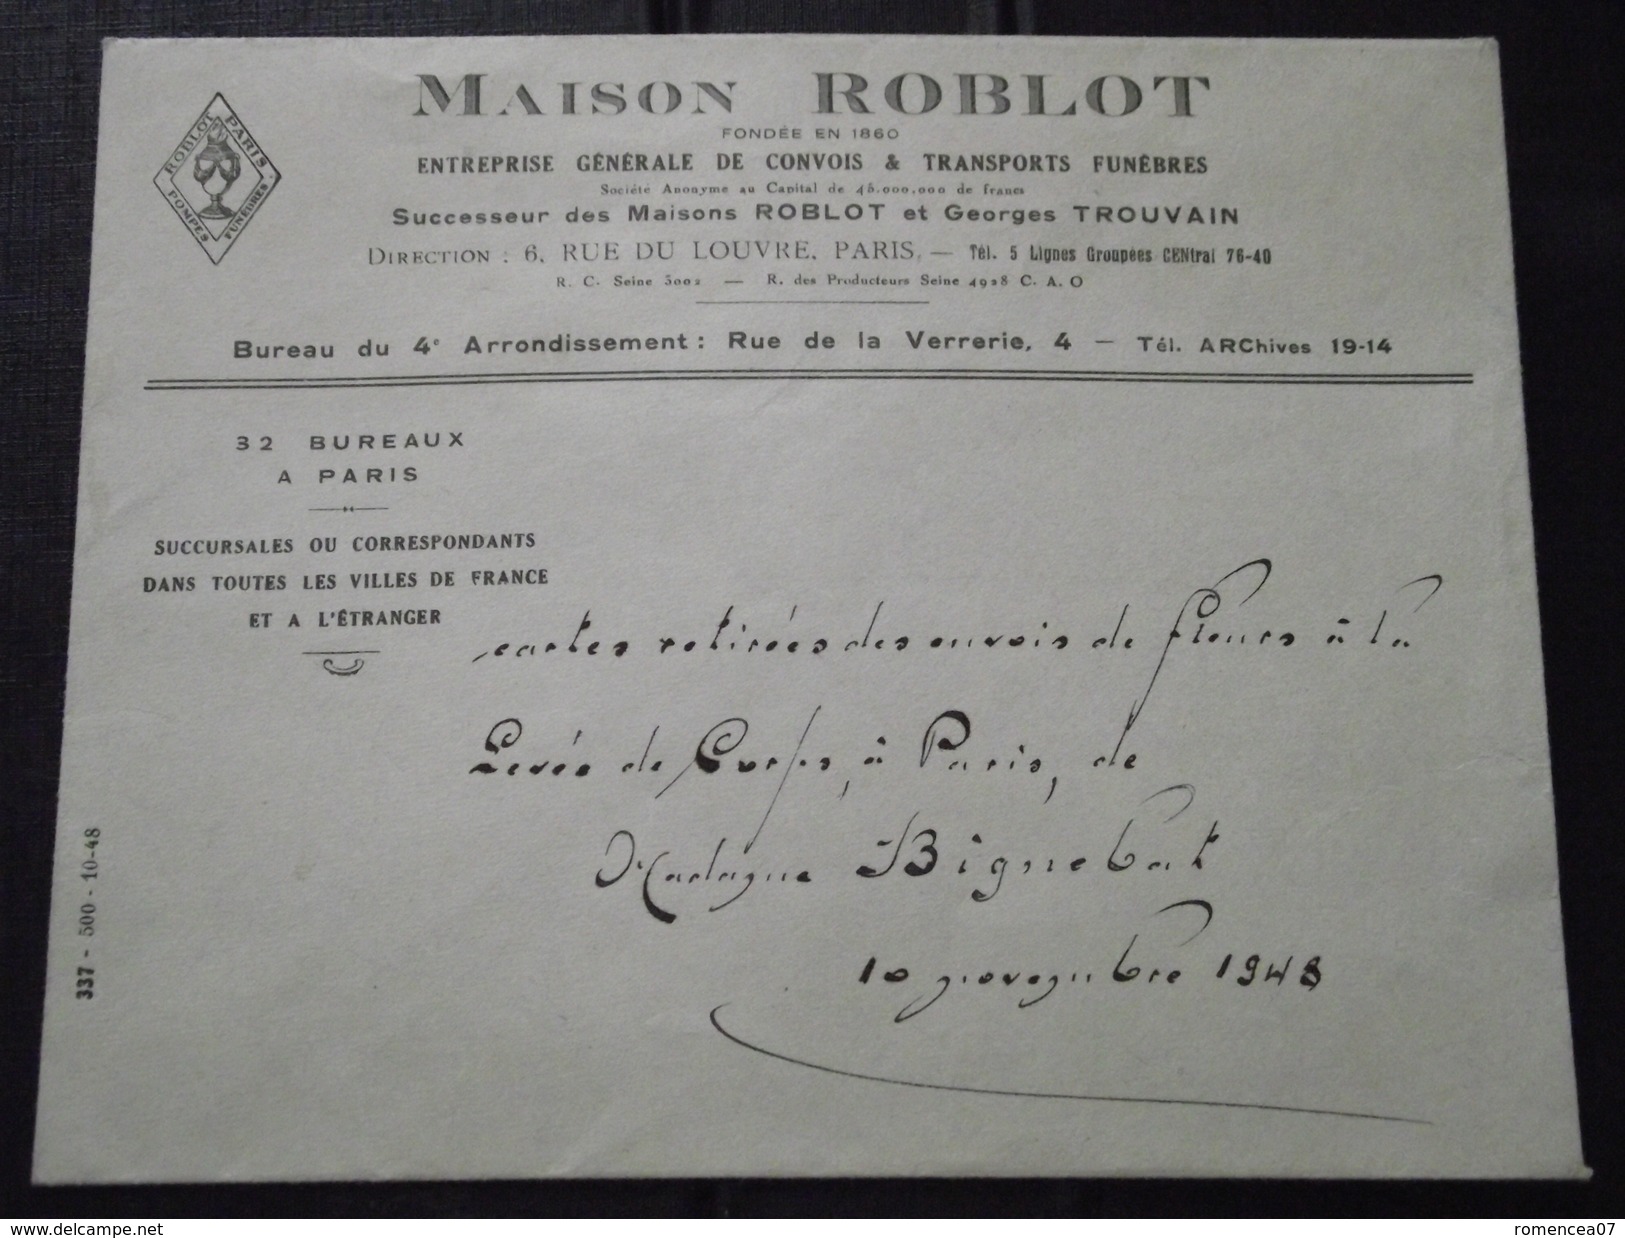 ROBLOT PARIS
POMPES FUNÈBRES
MAISON ROBLOT
FONDÉE EN 1860
ENTREPRISE GÉNÉRALE DE CONVOIS & TRANSPORTS FUNÈBRES
Société Anonyme au Capital de 45.000.000 de francs
Successeur des Maisons ROBLOT et Georges TROUVAIN
DIRECTION : 6, RUE DU LOUVRE, PARIS. — Tél. 5 Lignes Groupées CENtral 76-40
R. C. Seine 3002 — R. des Producteurs Seine 4928 C. A. O
Bureau du 4e Arrondissement : Rue de la Verrerie, 4 — Tél. ARChives 19-14
32 BUREAUX
A PARIS
SUCCURSALES OU CORRESPONDANTS
DANS TOUTES LES VILLES DE FRANCE
ET A L'ÉTRANGER
cartes retirées des envois de fleurs à la
Levée de Corps, à Paris, de
Madame Bignebat
10 novembre 1948
337 - 500 - 10-48
www.delcampe.net
romencea07